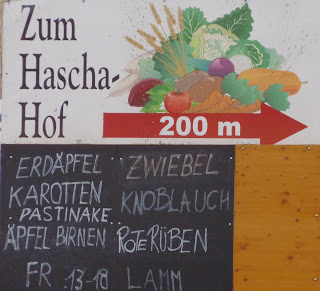 Zum
Hascha-
Hof
200 m
ERDÄPFEL ZWIEBEL
KAROTTEN KNOBLAUCH
PASTINAKE
ÄPFEL BIRNEN ROTE RÜBEN
FR. 13-18 LAMM